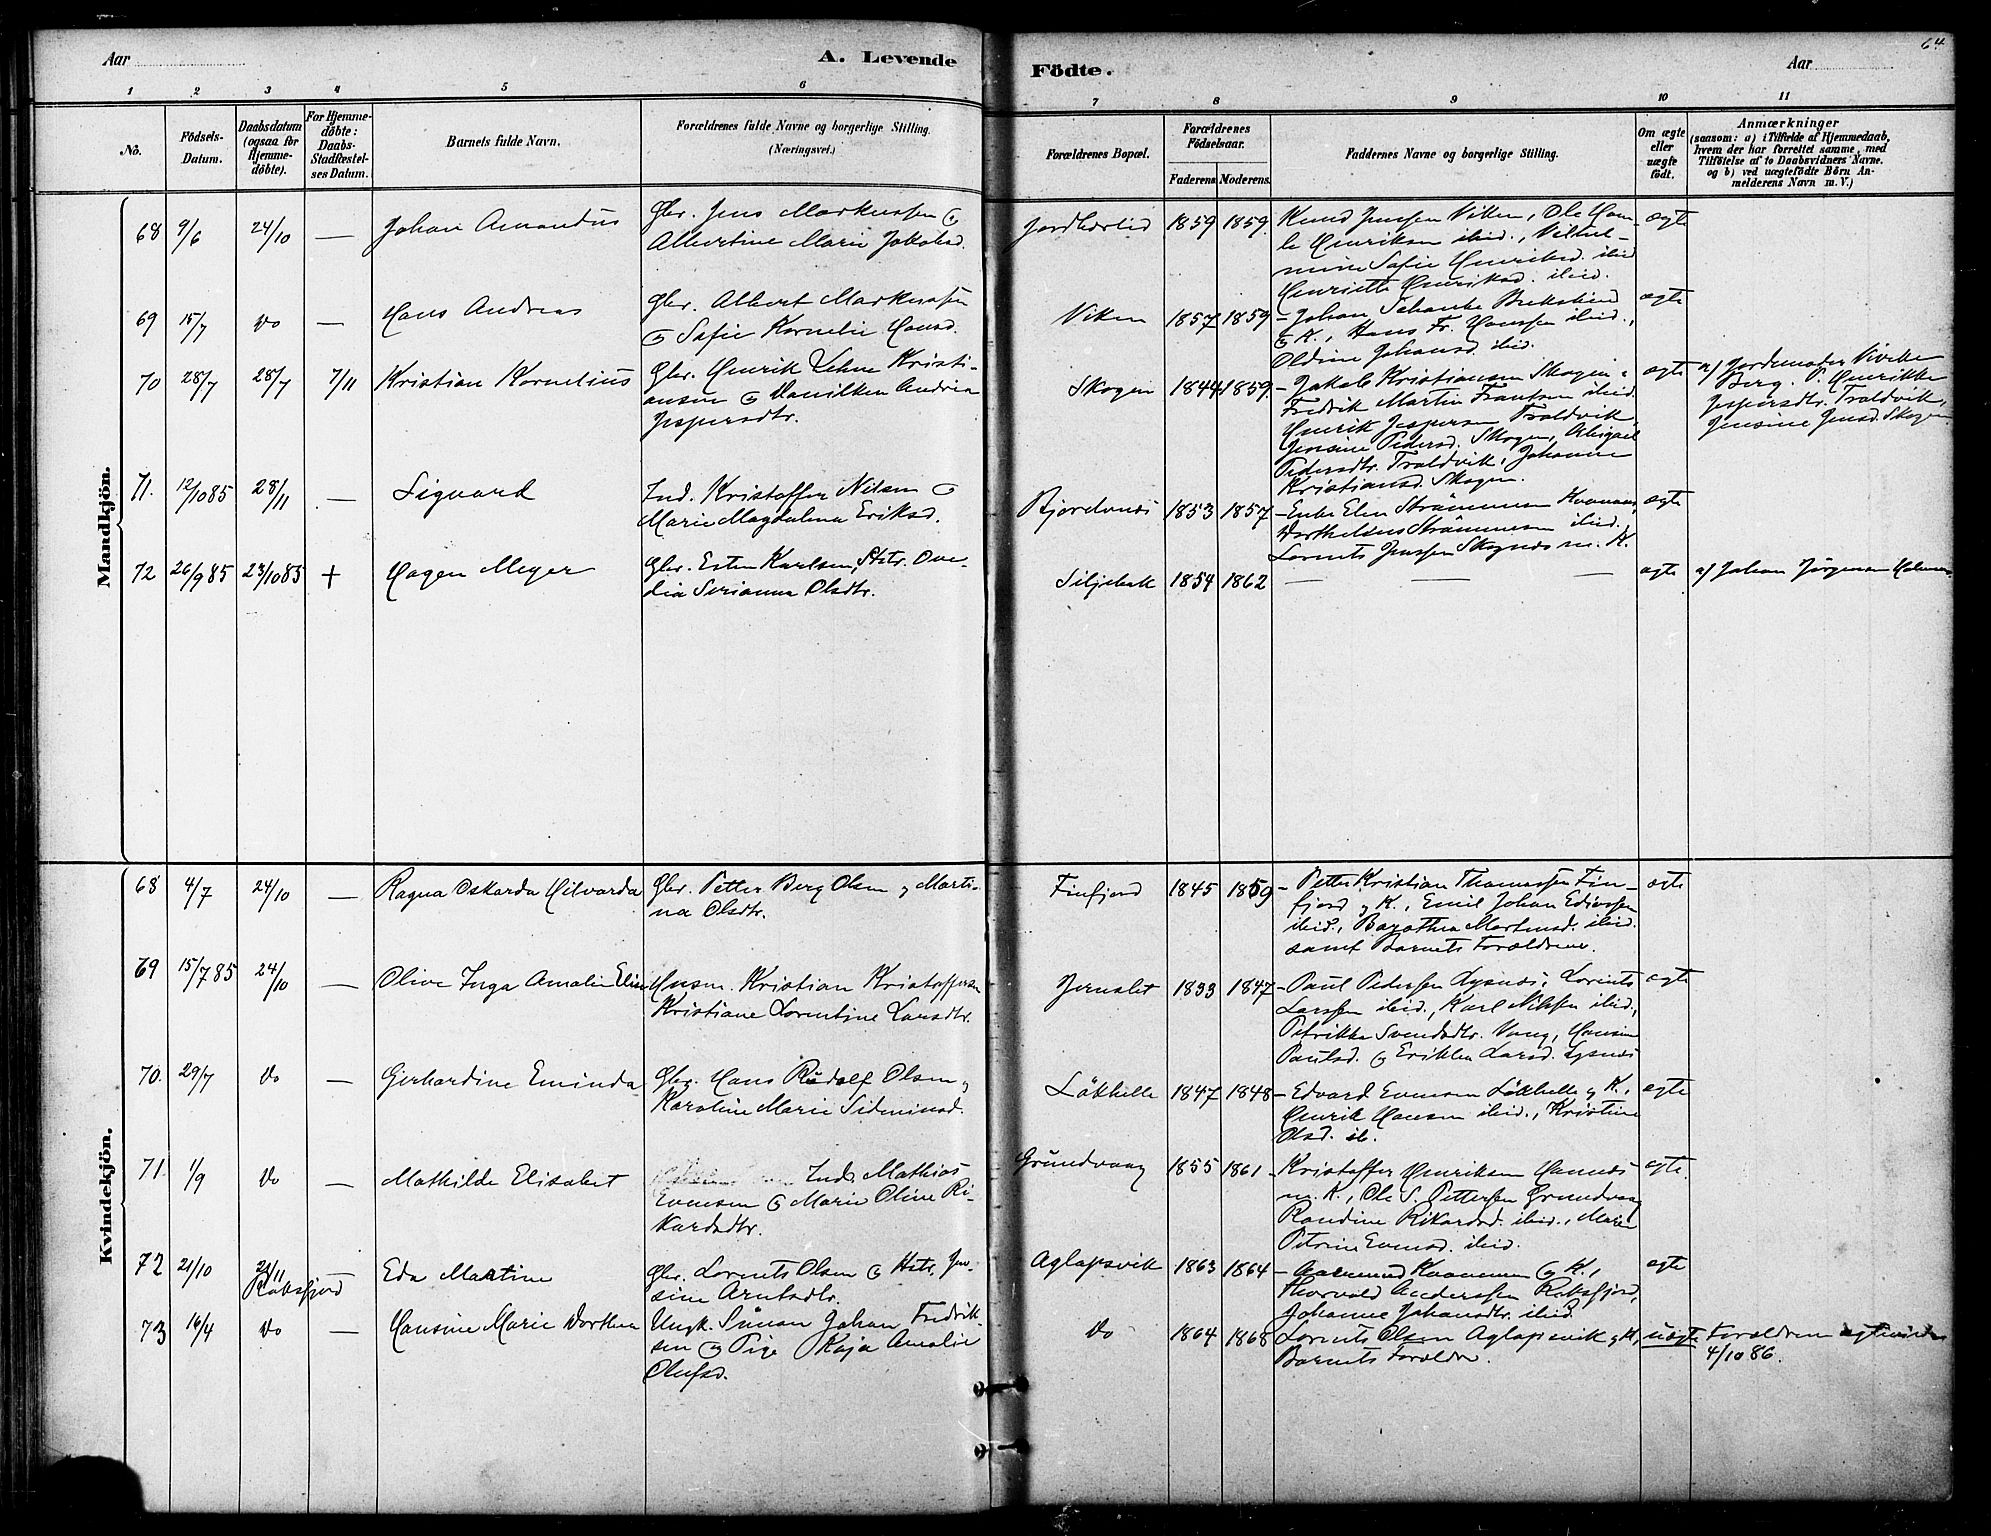 64
Aar
A. Levende
Födte.
Aar
1 2 3 4 5 6 7 8 9 10 11
No.
Födsels-
Datum.
Daabsdatum
(ogsaa for
Hjemme-
döbte).
For Hjemme-
döbte:
Daabs-
Stadfæstel-
ses Datum.
Barnets fulde Navn.
Forældrenes fulde Navne og borgerlige Stilling.
(Næringsvei.)
Forældrenes Bopæl.
Forældrenes
Födselsaar.
Faderens Moderens.
Faddernes Navne og borgerlige Stilling.
Om ægte
eller
uægte
födt.
Anmærkninger
(saasom: a) i Tilfælde af Hjemmedaab,
hvem der har forrettet samme, med
Tilföielse af to Daabsvidners Navne.
og b) ved uægtefödte Börn An-
melderens Navn m. V.)
Mandkjön.
68 9/6 24/10 — Johan Amandus
Gbr. Jens Markussen &
Albertine Marie Jakobsd.
1859 1859.
Knud Jenssen Viken, Ole Ham-
Henriksen ibid., Vilhel-
mine Sofie Henriksd. ibid
Henriette Henriksd. ibid.
ægte
69 15/7 Do — Hans Andreas
Gbr. Albert Markussen
& Sofie Kornelie Hansd.
Viken 1857 1859
– Johan Schanke
& K., Hans Fr. Hanssen ibid.,
Oldine Johansd. ibid.
ægte
70 28/7 28/7 7/11 Kristian Kornelius
Gbr. Henrik Lehn Kristi-
ansen & Andrea
Jespersdtr.
Skogen 1844 1859.
– Jakob Kristiansen Skogen,
Fredrik Martin Frantsen ibid.
Henrik Jespersen Traldvik,
Jensine Pedersd. Skogen, Abigael
Pedersdtr. Traldvik, Johanna
Kristiansd. Skogen.
ægte
a/ Jordemoder
Berg. P. Henrikke
Jespersdtr. Traldvik,
Jensine Jensd. Skogen
71. 12/10 85 28/11 — Sigvard
Ind. Kristoffer Nilsen &
Marie Magdalena Eriksd.
1853 1857
– Enke Elen Strømmen
Strømmesen ibid.
Lornts Jenssen Skognæs m. K.
ægte
72 26/9 85 23/10 85 + Hagen Meyer
Gbr. Esten Karlsen, Hstr. Ove-
dia Serianna Olsdtr.
Siljebak 1854 1862 — — —
ægte
a/ Johan Jørgensen
Kvindekjön.
68 4/7 24/10 — Ragna Oskarda Hilvarda
Gbr. Petter Berg Olsen & Marti-
na Olsdtr.
Finfjord 1845 1859
– Petter Kristian Thomassen Fin-
fjord & K., Emil Johan
ibid., Martinsd. ibid.
samt Barnets Forældrene.
ægte
69 15/7 85 24/10 — Olive Inga Amalie Elin
Husm. Kristian Kristoffersen
Kristiane Lorentine Larsdtr.
1833 1847
– Paul Pedersen Lysnæs, Lornts
Larssen ibid., Karl Nilssen ibid.,
Petrikke Svendsdtr. Vang,
Paulsd. & Larsd. Lysnæs
ægte
70. 29/7 Do — Gerhardine Eminda
Gbr. Hans Rudolf Olsen &
Karoline Marie
Løkhelle 1847 1848
– Edvard Evensen Løkhelle & K.,
Henrik Hansen ibid., Kristine
Olsd. ib.
ægte
71. 1/9 Do — Mathilde Elisabet
Inds. Mathias
Evensen & Marie Oline Ri-
kardsdtr.
Grundvaag 1855 1861
– Kristoffer Henriksen
m. K., Ole S. Pettersen Grundvaag
Randine Rikardsd. ibid., Maren
Petrine Evensd. ibid.
ægte.
72 21/10 21/11
Røksfjord
Eda Martine
Gbr. Lornts Olsen & Hstr. Jen-
sine Arntsdtr.
Aglapsvik 1863 1864
& K.,
Thorvald Anderssen Røksfjord,
Johanne Johansdtr. ibid.
ægte
73 16/4 Do — Hansine Marie Dorthea
Ungk. Simon Johan Fredrik-
sen & Pige Kaja Amalie
Olufsd.
Do 1864 1868
Lornts Olsen Aglapsvik & K,
Barnets Forældre.
uægte
Forældrene
4/10 86.